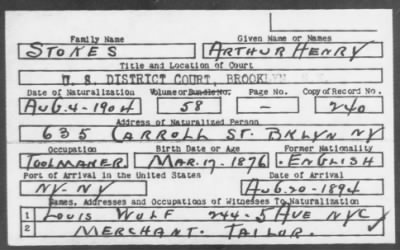 Family Name Given Name or Names
STOKES ARTHUR HENRY
Title and Location of Court
U. S. DISTRICT COURT, BROOKLYN
Date of Naturalization Volume or Bundle No. Page No. Copy of Record No.
AUG. 4-1904 58 - 240
Address of Naturalized Person
635 CARROLL ST. BKLYN NY
Occupation Birth Date or Age Former Nationality
TOOLMAKER MAR. 17. 1876 ENGLISH
Port of Arrival in the United States Date of Arrival
NY-NY AUG. 20-1894
Names, Addresses and Occupations of Witnesses To Naturalization
1 LOUIS WOLF 244-5 AVE NYC
2 MERCHANT. TAILOR.